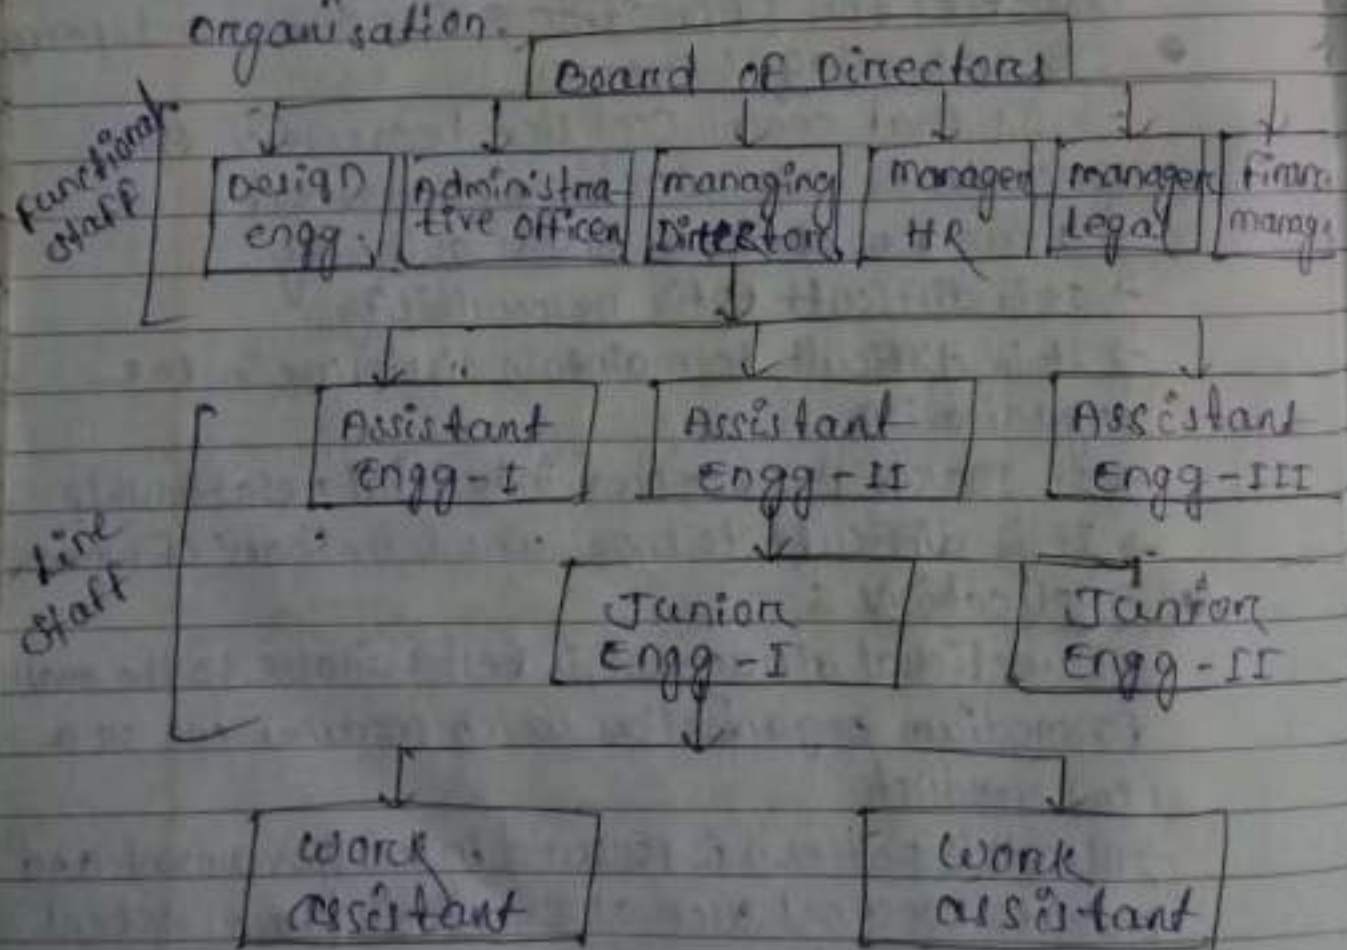 organisation.
Board of Directors
Functional
staff
Design
engg.
Administra-
tive officer
managing
Director
manager
HR
manager
Legal
Finan.
manag.
Line
staff
Assistant
Engg-I
Assistant
Engg-II
Assistant
Engg-III
Junior
Engg-I
Junior
Engg-II
work
assistant
work
assistant